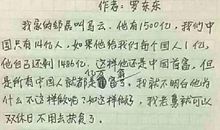 作者：罗东东
我家的邻居叫马云，他有1500亿，我们中
国只有14亿人，如果他给我们每个国人1亿，
他自己还剩1486亿，这样他还是中国首富，但
是所有中国人就都是亿万富翁了，我就不明白他为
什么不这样做呢？如这样做了，我老舅就可以
双休日不用去